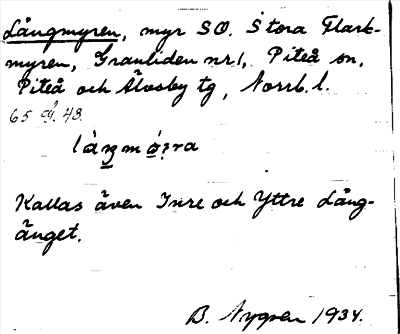 Långmyren, myr SO. Stora Flark-
myren, Granliden nr 1, Piteå sn,
Piteå och Älvsby tg, Norrb. l.
65 48.
Kallas även Inre och Yttre Lång-
änget.
B. Nygren 1934.